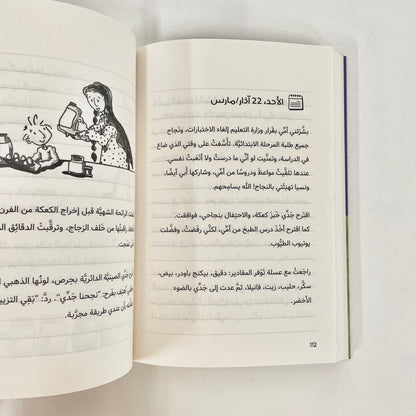 الأحد، 22 آذار/مارس
بشّرتني أمّي بقرار وزارة التعليم إلغاء الاختبارات، ونجاح
جميع طلبة المرحلة الابتدائيّة. تأسّفتُ على وقتي الذي ضاع
في الدراسة، وتمنّيت لو أنّي ما درستُ ولا أتعبتُ نفسي.
عندها تلقّيتُ مواعظ ودروسًا من أمّي، وشاركها أبي أيضًا،
ونسيا تهنئتي بالنجاح! الله يسامحهم.
اقترح جَدّي خَبزَ كعكة، والاحتِفال بنجاحي، فوافقت.
كما اقترح أخْذ درس الطبخ من أمّي، لكنّي رفضتُ، وفضّلت
يوتيوب الطيُّوب.
راجَعتُ مع عسلة توفّر المقادير: دقيق، بيكنج باودر، بيض،
سكّر، حليب، زيت، فانيلا، ثمّ عدت إلى جَدّي بالضوء
الأخضر.
112
الرائحة الشهيّة قبل إخراج الكعكة من الفرن
من خَلف الزجاج، وترقّبتُ الدقائق
جَدّي الصينيّة الدائريّة بحِرص، لونُها الذهبي
بفرح: "نجحنا جَدّي". ردّ: "بَقِي التزيين
عندي طريقة مجرّبة.